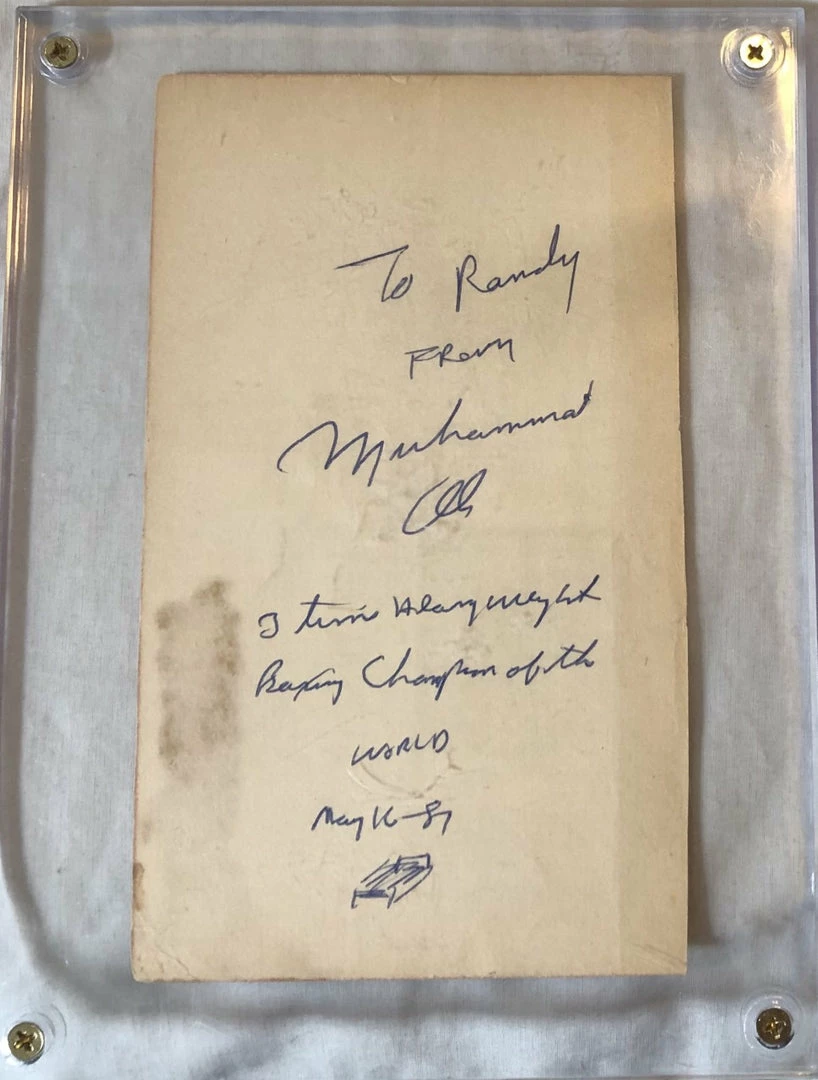 To Randy
FROM
Muhammad
Ali
3 time Heavyweight
Boxing Champion of the
WORLD
May 16-87